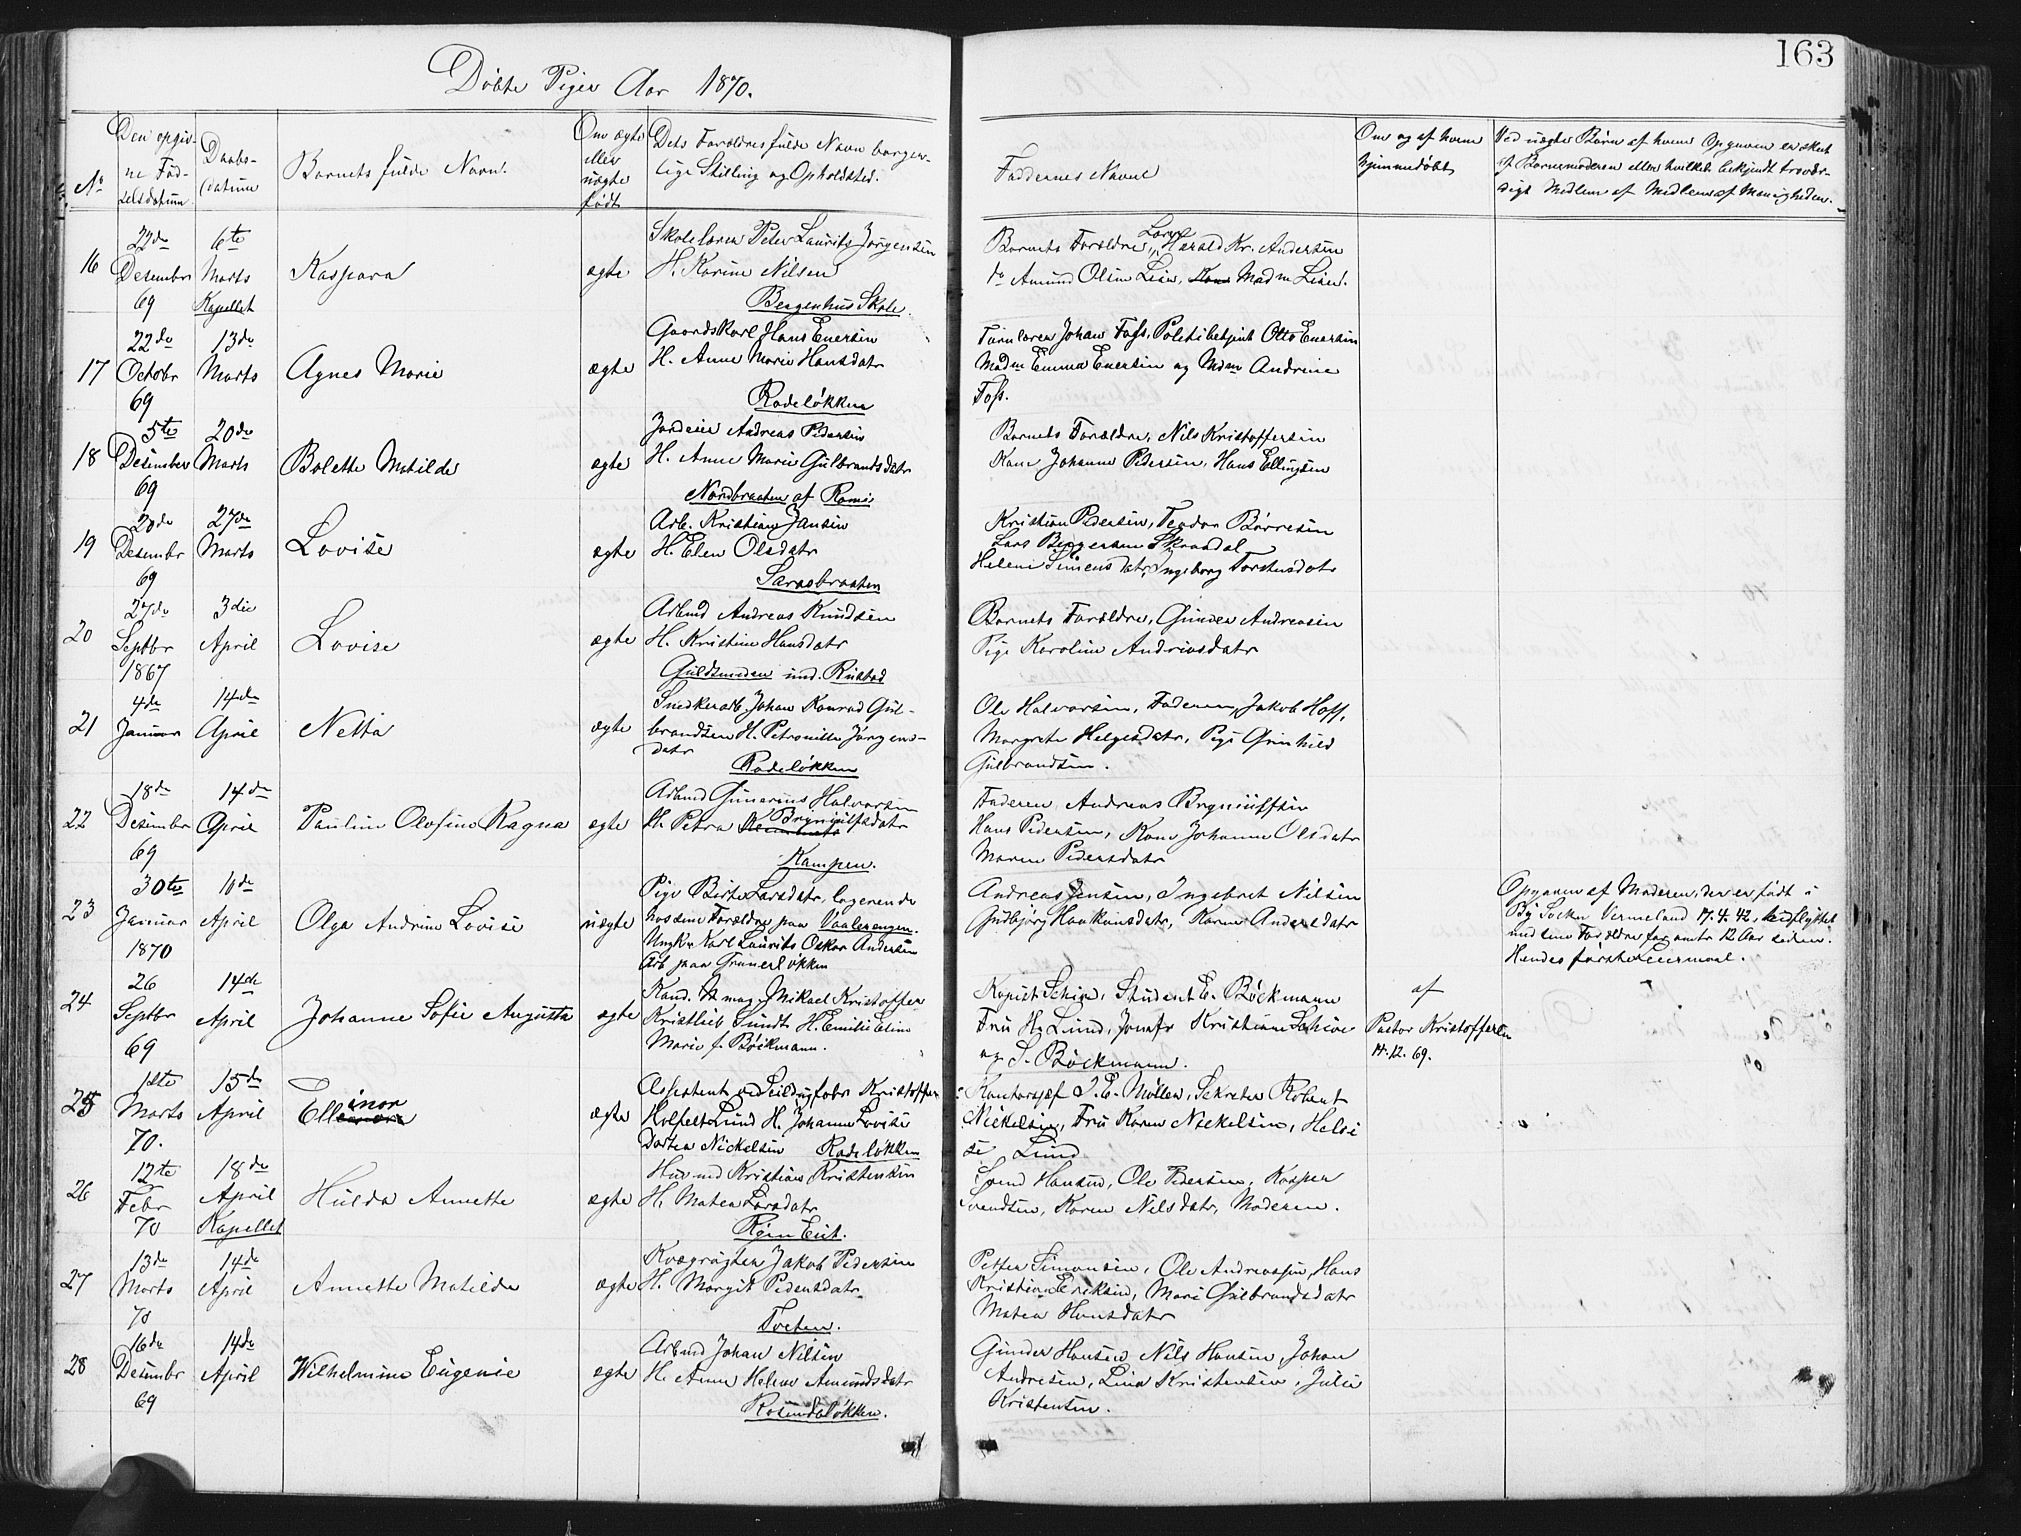 163
Døbte Piger Aar 1870.
No
Den opgiv-
ne Fød-
selsdatum
Daabs-
datum
Barnets fulde Navn.
Om ægte
eller
uægte
født
Dets Forældres fulde Navn borger-
lige Stilling og Opholdsted.
Faddernes Navne
Om og af hvem
hjemmedøbt
Ved uægte Børn af hvem Opgaven er skeet
af Barnemoderen eller hvilket bekjendt trovær-
digt Medlem af Menigheden.
16
22de
Desember
69
6te
Marts
Kapellet
Kaspara
ægte
Skolelærer Peter Laurits Jørgensen
H. Karine Nilsen
Bergenhus Skole.
Barnets Forældre, Lærer Harald Kr. Andersen
do Amund Olsen Lien, Madm Lien.
17
22de
Octobr
69
13de
Marts
Agnes Marie
ægte
Gaardskarl Hans Enersen
H. Anne Marie Hansdatr
Rodeløkken
Johan Foss, Politibetjent Otto Enersen
Madm Emma Enersen og Mdm Andrine
Foss.
18
5te
Desember
69
20de
Marts
Bolette Matilde
ægte
Jordeier Andreas Pedersen
H. Anne Marie Gulbrandsdatr
Nordbraaten af
Barnets Forældre, Nils Kristoffersen
Kone Johanne Pedersen, Hans Ellingsen
19
20de
Desembr
69
27de
Marts
Lovise
ægte
Arb. Kristian Jansen
H. Elen Olsdatr
Sarasbraaten
Kristian Pedersen, Teodor Børresen
Lars Skraadal
Helene Simensdatr, Ingeborg Torstensdatr
20
27de
Septbr
1867
3die
April
Lovise
ægte
Arbmd Andreas Knudsen
H. Kristine Hansdatr
Guldsmeden und. Rustad
Barnets Forældre, Gunder Andreasen
Pige Karoline Andreasdatr
21
4de
Januar
14de
April
Netta
ægte
Snedkerarb. Johan Konrad Gul-
brandsen H. Petronille Jørgens-
datr
Rodeløkken
Ole Halvorsen, Faderen, Jakob Hoff,
Margrete Helgesdatr, Pige Gunhild
Gulbrandsen.
22
18de
Desember
69
14de
April
Pauline Olofine Ragna
ægte
Arbmd Gunerius Halvorsen
H. Petra Brynjulfsdatr
Kampen.
Faderen, Andreas Brynjulfsen
Hans Pedersen, Kone Johanne Olsdatr
Maren Pedersdatr
23
30te
Januar
1870
10de
April
Olga Andrine Lovise
uægte
Pige Birte Larsdatr, logerende
hos sine Forældre paa Vaalerengen.
Ungkr Karl Laurits Oskar Andersen
Arb paa Grünerløkken
Andreas Jensen, Ingebret Nilsen
Gudbjørg Haakonsdatr, Karen Andersdatr
Opgaven af Moderen, der er født i
By Socken Vermeland 17. 4. 42, hidflyttet
med sine Forældre for omtr 12 Aar siden.
Hendes første Leiermaal.
24
26
Septbr
69
14de
April
Johanne Sofie Augusta
ægte
Kand. mag. Mikael Kristoffer
Kristlieb Sundt H. Emilie Eline
Marie f. Bøckmann.
Kopist Schiøe, Student E. Bøckmann
Fru H. Lund, Jomfr Kristiane Schiøe
og S. Bøckmann.
af
Pastor Kristoffersen
14. 12. 69.
25
1ste
Marts
70.
15de
April
Ellinor
ægte
Assistent ved Kristoffer
Holfelt Lund H. Johanne Lovise
Dortea Nickelsen Rodeløkken
Kontorsjef J. E. Møller, Sekretær Robert
Nickelsen, Fru Karen Nickelsen, Helei
se Lund
26
12te
Febr
70
18de
April
Kapellet
Hulda Annette
ægte
Husmd Kristian Kristensen
H. Matea Larsdatr
Svend Hansen, Ole Pedersen, Kasper
Svendsen, Karen Nilsdatr, Moderen.
27
13de
Marts
70
14de
April
Annette Matilde
ægte
Kvægrøgter Jakob Pedersen
H. Margit Pedersdatr
Tveten.
Petter Simonsen, Ole Andreassen, Hans
Kristian Eriksen, Mari Gulbrandsdatr
Matea Hansdatr
28
16de
Desembr
69
14de
April
Wilhelmine Eugenie
ægte
Arbmd Johan Nilsen
H. Anne Helene Amundsdatr
Rosendaløkken.
Gunder Hansen, Nils Hansen, Johan
Andresen, Lina Kristensen, Julie
Kristensen.